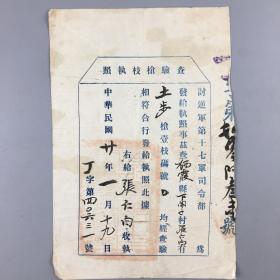 查驗槍枝執照
討逆軍第十七軍司令部 為
發給執照事茲查栖霞縣 村
土步槍壹枝編號 均經查驗
相符合行發給執照此據
右給張仁尚收執
中華民國廿年一月十九日
丁字第四〇六三一號